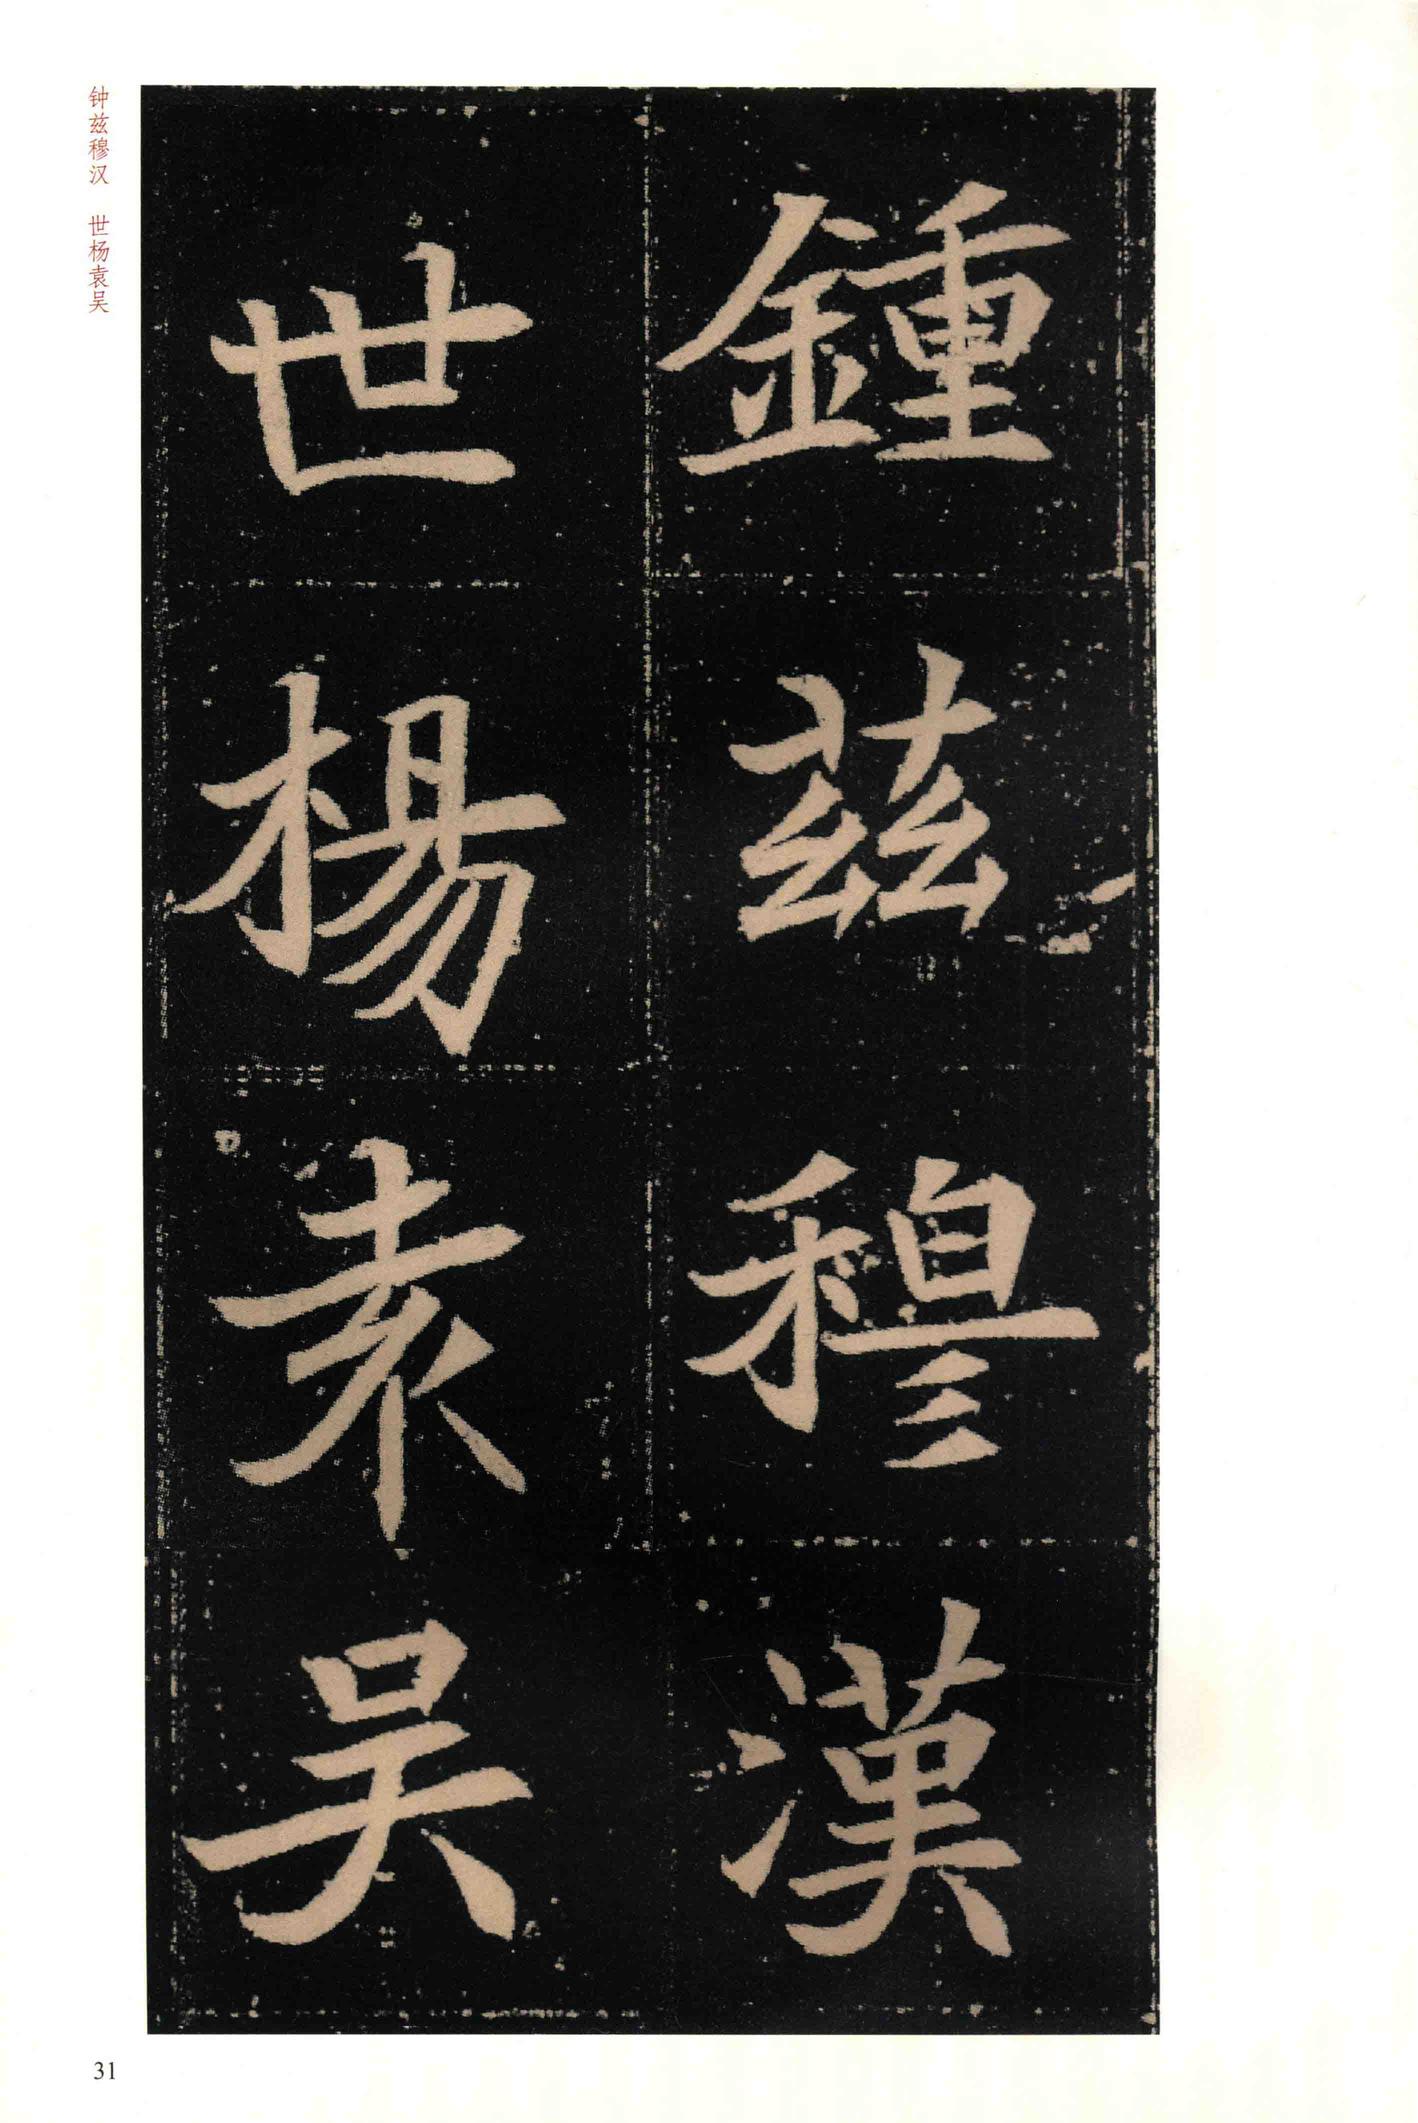 鍾兹穆漢
世楊袁吴
钟兹穆汉 世杨袁吴
31